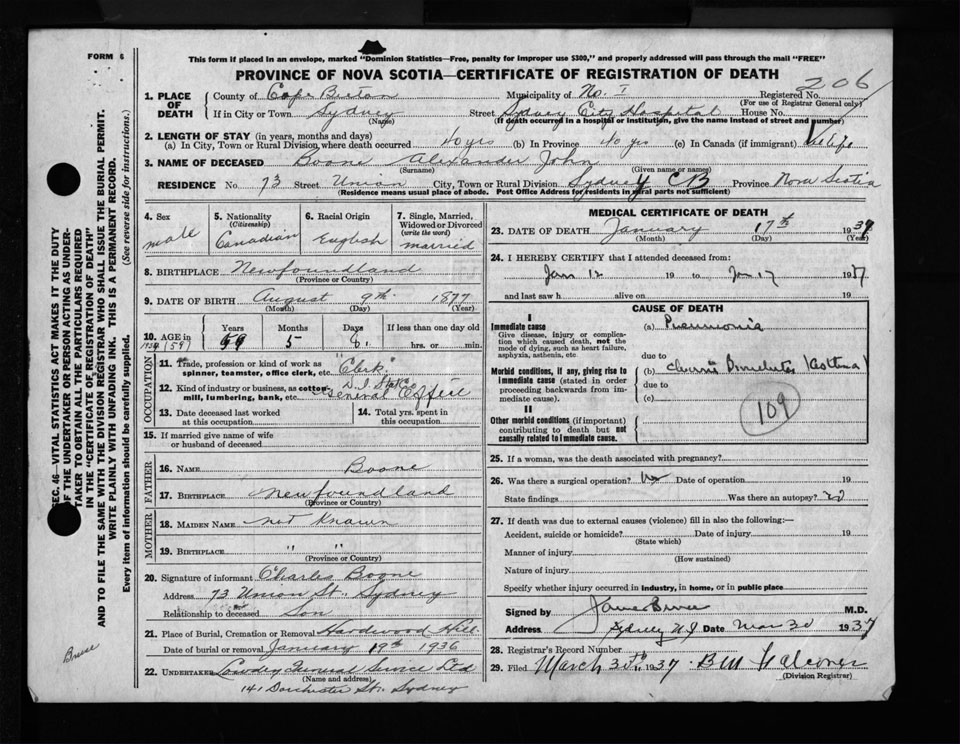 FORM 6
This form if placed in an envelope, marked "Dominion Statistics—Free, penalty for improper use $300," and properly addressed will pass through the mail "FREE"
PROVINCE OF NOVA SCOTIA—CERTIFICATE OF REGISTRATION OF DEATH
206
1. PLACE OF DEATH
County of Cape Breton Municipality of No. I Registered No.
(For use of Registrar General only)
If in City or Town Sydney Street Sydney City Hospital House No.
(Name) (If death occurred in a hospital or institution, give the name instead of street and number)
2. LENGTH OF STAY (in years, months and days)
(a) In City, Town or Rural Division where death occurred 40 yrs (b) In Province 40 yrs (c) In Canada (if immigrant) life
3. NAME OF DECEASED Boone Alexander John
(Surname) (Given name or names)
RESIDENCE No. 73 Street Union City, Town or Rural Division Sydney CB Province Nova Scotia
(Residence means usual place of abode. Post Office Address for residents in rural parts not sufficient)
4. Sex male
5. Nationality (Citizenship) Canadian
6. Racial Origin English
7. Single, Married, Widowed or Divorced (write the word) married
8. BIRTHPLACE Newfoundland
(Province or Country)
9. DATE OF BIRTH August 9th 1877
(Month) (Day) (Year)
10. AGE in
Years Months Days If less than one day old
59 5 8 hrs. or min.
OCCUPATION
11. Trade, profession or kind of work as spinner, teamster, office clerk, etc. "Clerk"
12. Kind of industry or business, as cotton-mill, lumbering, bank, etc. General Office
13. Date deceased last worked at this occupation
14. Total yrs. spent in this occupation
15. If married give name of wife or husband of deceased
FATHER
16. NAME Boone
17. BIRTHPLACE Newfoundland
(Province or Country)
MOTHER
18. MAIDEN NAME not Known
19. BIRTHPLACE " "
(Province or Country)
20. Signature of informant Charles Boone
Address 73 Union St., Sydney
Relationship to deceased Son
21. Place of Burial, Cremation or Removal Hardwood Hill
Date of burial or removal January 19th 1936
22. UNDERTAKER Funeral Service Ltd
(Name and address)
141 Dorchester St., Sydney
MEDICAL CERTIFICATE OF DEATH
23. DATE OF DEATH January 17th 193
(Month) (Day) (Year)
24. I HEREBY CERTIFY that I attended deceased from:
Jan 12 19 to Jan 17 1937
and last saw h alive on 19
CAUSE OF DEATH
I
Immediate cause
Give disease, injury or complication which caused death, not the mode of dying, such as heart failure, asphyxia, asthenia, etc.
(a) Pneumonia
due to
Morbid conditions, if any, giving rise to immediate cause (stated in order proceeding backwards from immediate cause).
(b) Asthma
due to
(c)
109
II
Other morbid conditions (if important) contributing to death but not causally related to immediate cause.
25. If a woman, was the death associated with pregnancy?
26. Was there a surgical operation? no Date of operation 19
State findings Was there an autopsy? no
27. If death was due to external causes (violence) fill in also the following:—
Accident, suicide or homicide? Date of injury 19
(State which)
Manner of injury
(How sustained)
Nature of injury
Specify whether injury occurred in industry, in home, or in public place
Signed by M.D.
Address Sydney N.S Date Mar 30 1937
28. Registrar's Record Number
29. Filed March 30th, 1937 B M Falconer
(Division Registrar)
SEC. 46—VITAL STATISTICS ACT MAKES IT THE DUTY
OF THE UNDERTAKER OR PERSON ACTING AS UNDERTAKER TO OBTAIN ALL THE PARTICULARS REQUIRED
IN THE "CERTIFICATE OF REGISTRATION OF DEATH"
AND TO FILE THE SAME WITH THE DIVISION REGISTRAR WHO SHALL ISSUE THE BURIAL PERMIT.
WRITE PLAINLY WITH UNFADING INK. THIS IS A PERMANENT RECORD.
Every item of information should be carefully supplied. (See reverse side for instructions.)